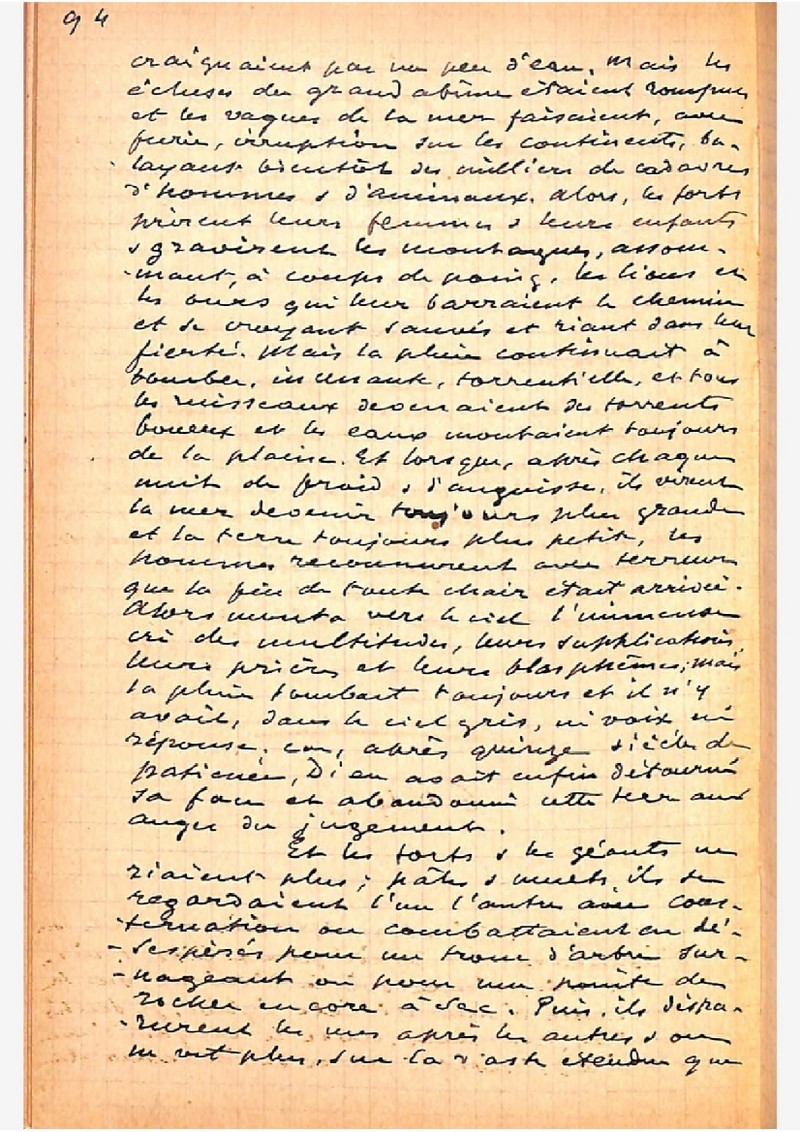 94
craignaient pas un peu d'eau. Mais les
écluses du grand abîme étaient rompues
et les vagues de la mer faisaient, avec
furie, irruption sur les continents, ba-
layant bientôt des milliers de cadavres
d'hommes & d'animaux. Alors, les forts
prirent leurs femmes & leurs enfants
& gravirent les montagnes, assom-
-mant, à coups de poing, les lions et
les ours qui leur barraient le chemin
et se croyant sauvés et riant dans leur
fierté. Mais la pluie continuait à
tomber, incessante, torrentielle, et tous
les ruisseaux devenaient des torrents
boueux et les eaux montaient toujours
de la plaine. Et lorsque, après chaque
nuit de froid & d'angoisse, ils virent
la mer devenir toujours plus grande
et la terre toujours plus petite, les
hommes reconnurent avec terreur
que la fin de toute chair était arrivée.
Alors monta vers le ciel l'immense
cri des multitudes, leurs supplications,
leurs prières et leurs blasphèmes; mais
la pluie tombait toujours et il n'y
avait, dans le ciel gris, ni voix ni
réponse, car, après quinze siècles de
patience, Dieu avait enfin détourné
sa face et abandonné cette terre aux
anges du jugement.
Et les forts & les géants ne
riaient plus; pâles & muets, ils se
regardaient l'un l'autre avec cons-
-ternation ou combattaient en dé-
-sespérés pour un tronc d'arbre sur-
-nageant ou pour une pointe de
rocher encore à sec. Puis, ils dispa-
-rurent les uns après les autres & on
ne vit plus, sur la vaste étendue que